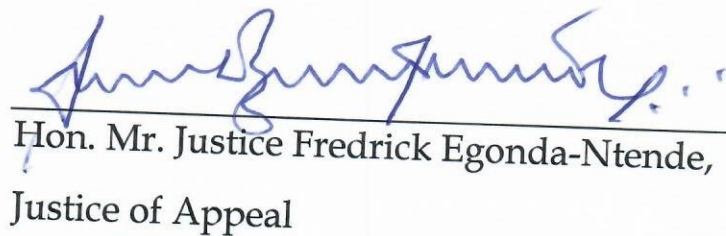 Hon. Mr. Justice Fredrick Egonda-Ntende,
Justice of Appeal